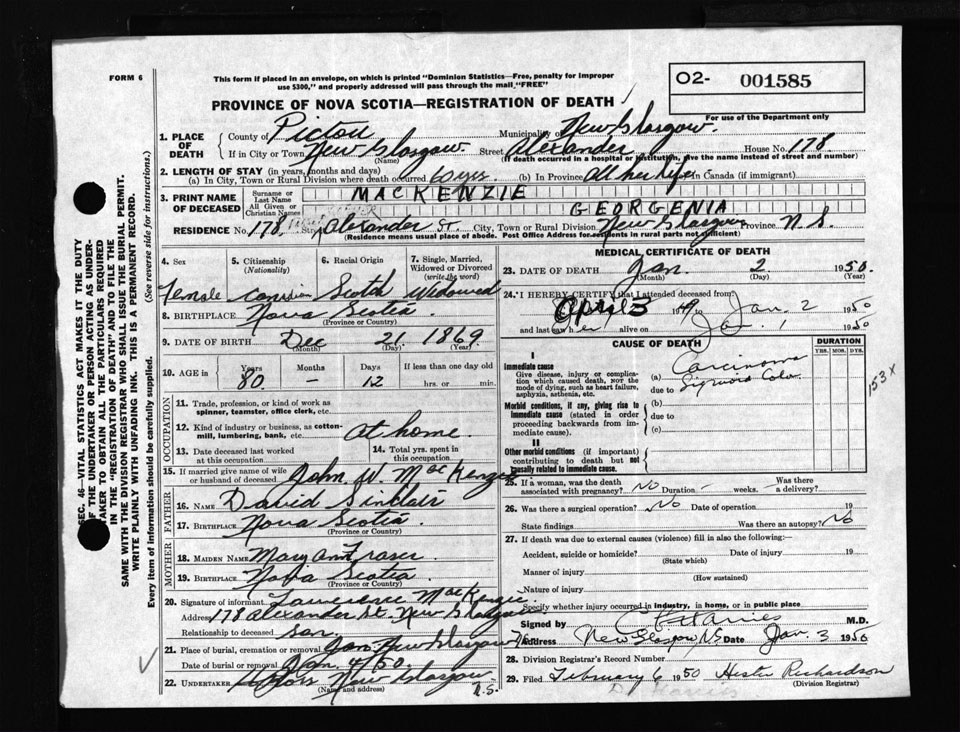 FORM 6
This form if placed in an envelope, on which is printed "Dominion Statistics—Free, penalty for improper
use $300," and properly addressed will pass through the mail "FREE"
PROVINCE OF NOVA SCOTIA—REGISTRATION OF DEATH
O2- 001585
For use of the Department only
1. PLACE OF DEATH
County of Pictou Municipality of New Glasgow.
If in City or Town New Glasgow. (Name) Street Alexander House No. 178.
(If death occurred in a hospital or institution, give the name instead of street and number)
2. LENGTH OF STAY (in years, months and days)
(a) In City, Town or Rural Division where death occurred 60 yrs. (b) In Province All her life in Canada (if immigrant)
3. PRINT NAME OF DECEASED
Surname or Last Name MACKENZIE
All Given or Christian Names GEORGENIA
RESIDENCE No. 178. Street Alexander St. City, Town or Rural Division New Glasgow Province N.S.
(Residence means usual place of abode. Post Office Address for residents in rural parts not sufficient)
4. Sex
Female
5. Citizenship (Nationality)
Canadian
6. Racial Origin
Scotch
7. Single, Married, Widowed or Divorced (write the word)
Widowed
8. BIRTHPLACE Nova Scotia
(Province or Country)
9. DATE OF BIRTH Dec 21 1869
(Month) (Day) (Year)
10. AGE in Years Months Days If less than one day old
80 – 12 hrs. or min.
OCCUPATION
11. Trade, profession, or kind of work as
spinner, teamster, office clerk, etc.
12. Kind of industry or business, as cotton-
mill, lumbering, bank, etc. At home.
13. Date deceased last worked at this occupation
14. Total yrs. spent in this occupation
15. If married give name of wife
or husband of deceased John W. MacKenzie
FATHER
16. NAME David Sinclair
17. BIRTHPLACE Nova Scotia.
(Province or Country)
MOTHER
18. MAIDEN NAME Mary Ann Fraser
19. BIRTHPLACE Nova Scotia.
(Province or Country)
20. Signature of informant Lawrence MacKenzie
Address 178 Alexander St. New Glasgow
Relationship to deceased son.
21. Place of burial, cremation or removal New Glasgow
Date of burial or removal Jan. 4/50.
22. UNDERTAKER New Glasgow N.S.
(Name and address)
MEDICAL CERTIFICATE OF DEATH
23. DATE OF DEATH Jan. 2 1950.
(Month) (Day) (Year)
24. I HEREBY CERTIFY that I attended deceased from:
April 5 1949 Jan. 2 1950
and last saw her alive on Jan. 1 1950
CAUSE OF DEATH
DURATION
YRS. MOS. DYS.
I
Immediate cause
Give disease, injury or complication which caused death, NOT the mode of dying, such as heart failure, asphyxia, asthenia, etc.
(a) Carcinoma
due to
Morbid conditions, if any, giving rise to immediate cause (stated in order proceeding backwards from immediate cause).
(b)
due to
(c)
II
Other morbid conditions (if important) contributing to death but not causally related to immediate cause.
153X
25. If a woman, was the death
associated with pregnancy? No Duration – weeks. Was there a delivery?
26. Was there a surgical operation? No Date of operation 19
State findings Was there an autopsy? No
27. If death was due to external causes (violence) fill in also the following:
Accident, suicide or homicide? Date of injury 19
(State which)
Manner of injury
(How sustained)
Nature of injury
Specify whether injury occurred in industry, in home, or in public place
Signed by M.D.
Address New Glasgow, N.S. Date Jan. 3 1950
28. Division Registrar's Record Number
29. Filed February 6 1950 Hester Richardson
(Division Registrar)
SEC. 46—VITAL STATISTICS ACT MAKES IT THE DUTY
OF THE UNDERTAKER OR PERSON ACTING AS UNDER-
TAKER TO OBTAIN ALL THE PARTICULARS REQUIRED
IN THE "REGISTRATION OF DEATH" AND TO FILE THE
SAME WITH THE DIVISION REGISTRAR WHO SHALL ISSUE THE BURIAL PERMIT.
WRITE PLAINLY WITH UNFADING INK. THIS IS A PERMANENT RECORD.
Every item of information should be carefully supplied. (See reverse side for instructions.)